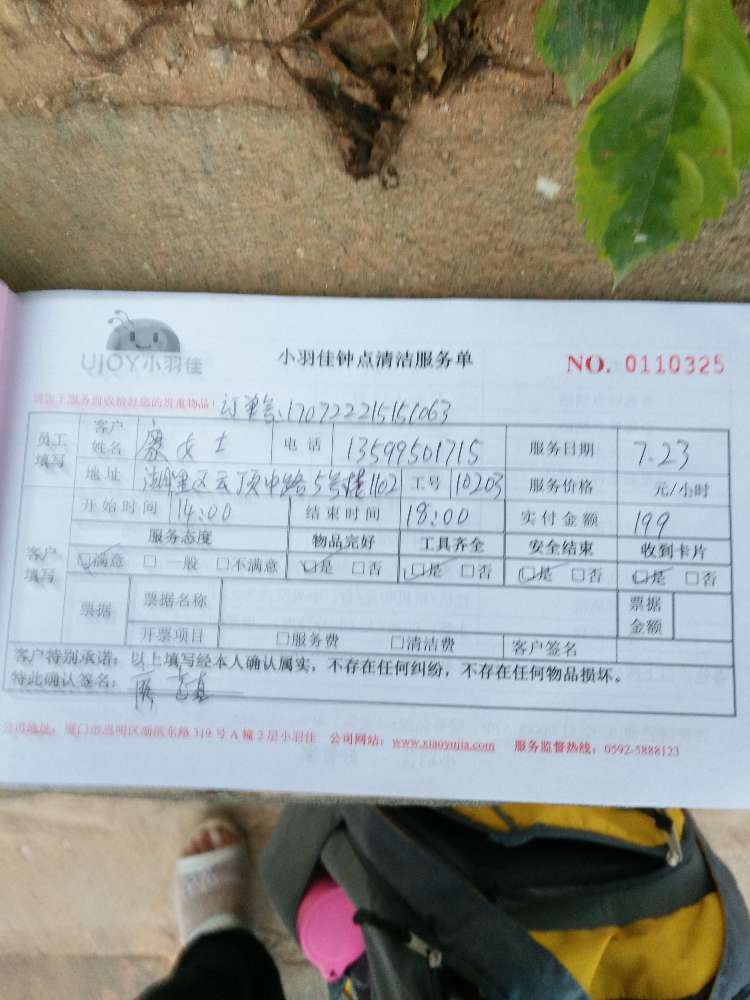 UJOY小羽佳
小羽佳钟点清洁服务单
NO. 0110325
订单号:170722215151063
员工填写 客户姓名 廖女士 电话 13599501715 服务日期 7.23
地址 湖里区云顶中路5号楼1102 工号 10203 服务价格 元/小时
客户填写 开始时间 14:00 结束时间 18:00 实付金额 199
服务态度 物品完好 工具齐全 安全结束 收到卡片
☑满意 □一般 □不满意 ☑是 □否 ☑是 □否 ☑是 □否 ☑是 □否
票据 票据名称 票据金额
开票项目 □服务费 □清洁费 客户签名
客户特别承诺:以上填写经本人确认属实,不存在任何纠纷,不存在任何物品损坏。
特此确认签名:
公司地址:厦门市思明区湖滨东路319号A幢2层小羽佳 公司网站:www.xiaoyujia.com 服务监督热线:0592-5888123